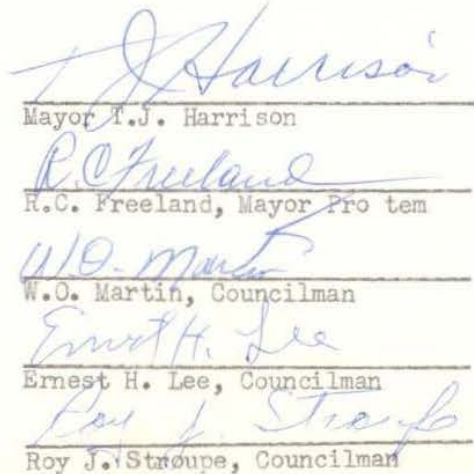 T J Harrison
Mayor T.J. Harrison
R.C. Freeland
R.C. Freeland, Mayor Pro tem
W.O. Martin
W.O. Martin, Councilman
Ernest H. Lee
Ernest H. Lee, Councilman
Roy J. Stroupe
Roy J. Stroupe, Councilman